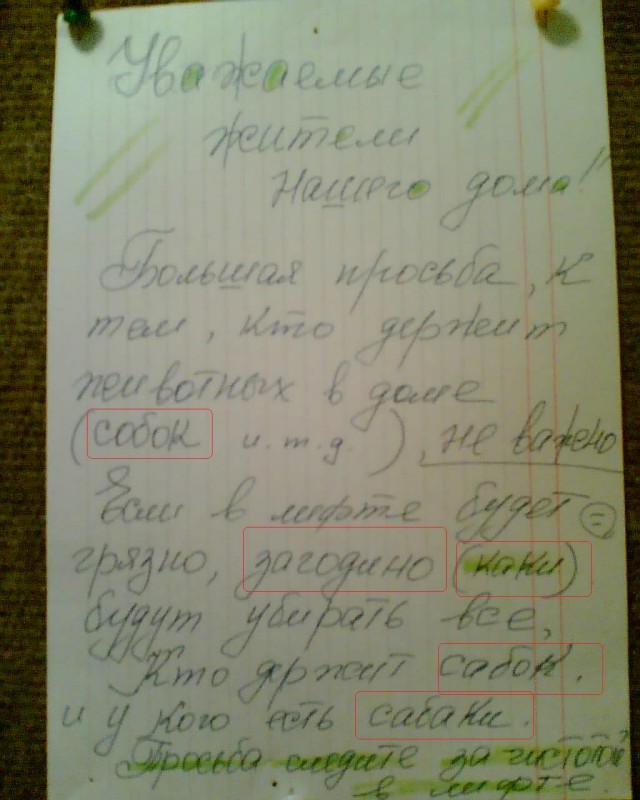 Уважаемые
жители
Нашего дома!!
Большая просьба, к
тем, кто держит
животных в доме
(собок и.т.д.), не важено
Если в лифте будет
грязно, загодино (каки) =
будут убирать все,
Кто держит сабок.
и у кого есть сабаки.
Просьба следите за чистотой
в лифте.